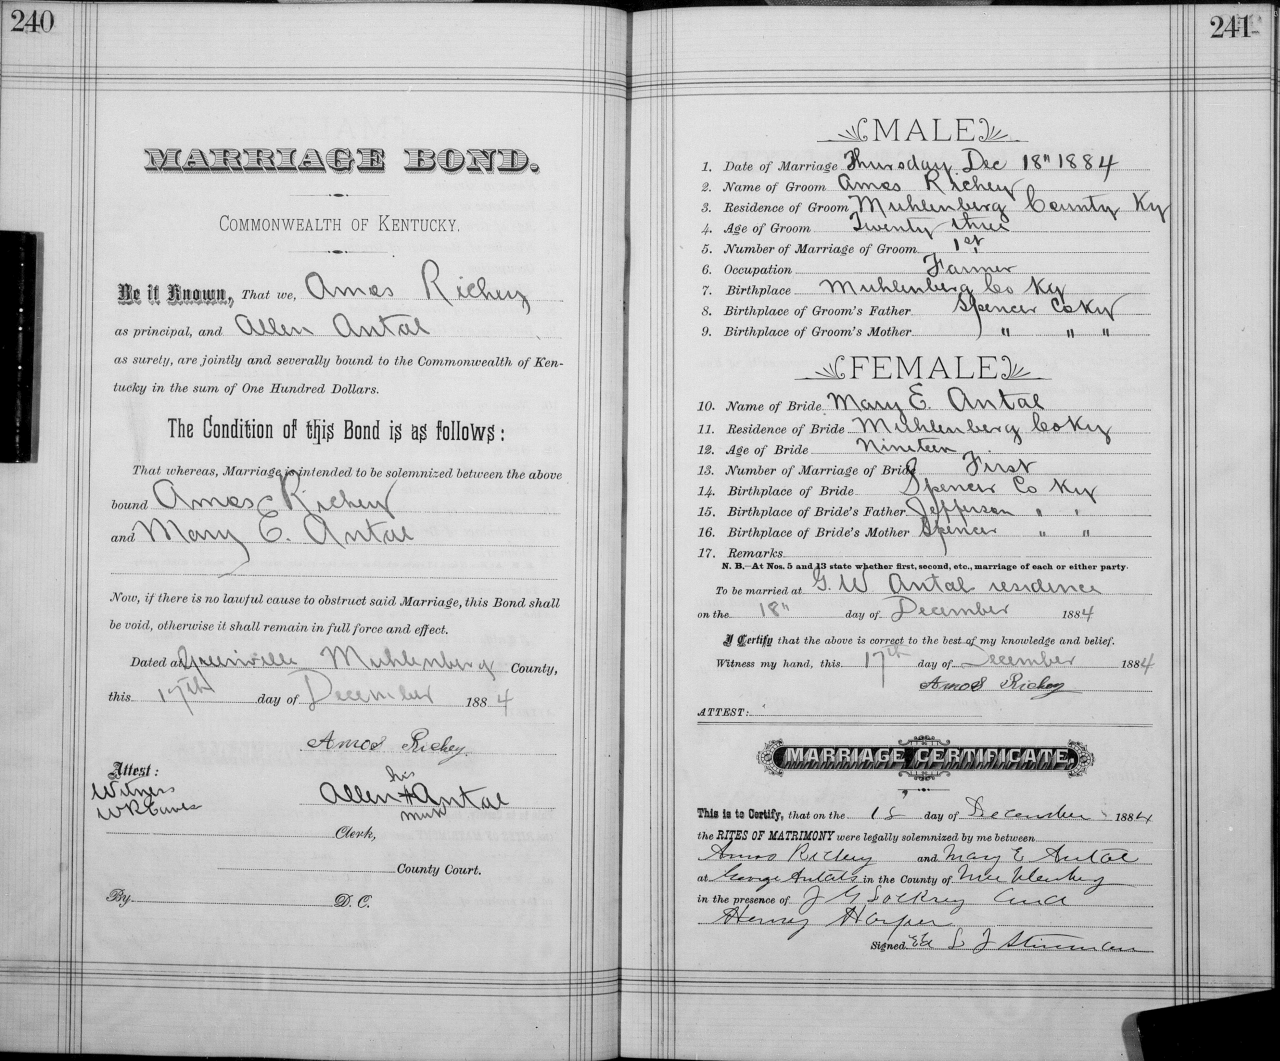 240
MARRIAGE BOND.
COMMONWEALTH OF KENTUCKY.
Be it Known, That we, Amos Richey
as principal, and Allen Antal
as surety, are jointly and severally bound to the Commonwealth of Ken-
tucky in the sum of One Hundred Dollars.
The Condition of this Bond is as follows:
That whereas, Marriage is intended to be solemnized between the above
bound Amos Richey
and Mary E. Antal
Now, if there is no lawful cause to obstruct said Marriage, this Bond shall
be void, otherwise it shall remain in full force and effect.
Dated at Greenville Muhlenberg County,
this 17th day of December 1884
Amos Richey.
Attest:
Witness
W R Eaves
his
Allen + Antal
mark
Clerk,
County Court.
By D. C.
241
MALE
1. Date of Marriage Thursday Dec 18" 1884
2. Name of Groom Amos Richey
3. Residence of Groom Muhlenberg County Ky
4. Age of Groom Twenty three
5. Number of Marriage of Groom 1st
6. Occupation Farmer
7. Birthplace Muhlenberg Co Ky
8. Birthplace of Groom's Father Spencer Co Ky
9. Birthplace of Groom's Mother " " "
FEMALE
10. Name of Bride Mary E. Antal
11. Residence of Bride Muhlenberg Co Ky
12. Age of Bride Nineteen
13. Number of Marriage of Bride First
14. Birthplace of Bride Spencer Co Ky
15. Birthplace of Bride's Father Jefferson " "
16. Birthplace of Bride's Mother Spencer " "
17. Remarks
N. B.—At Nos. 5 and 13 state whether first, second, etc., marriage of each or either party.
To be married at G. W Antal residence
on the 18" day of December 1884
I Certify that the above is correct to the best of my knowledge and belief.
Witness my hand, this 17th day of December 1884
Amos Richey
ATTEST:
MARRIAGE CERTIFICATE.
This is to Certify, that on the 18 day of December 1884
the RITES OF MATRIMONY were legally solemnized by me between
Amos Richey and Mary E Antal
at George Antals in the County of Muhlenberg
in the presence of J G and
Henry Harper
Signed